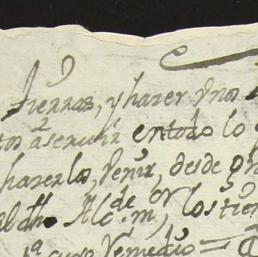 tierras, y hazer
tos a seruir en todo lo
hazerlos, venir, desde
al dho Alc.de m.or, los tien
cuyo remedio =